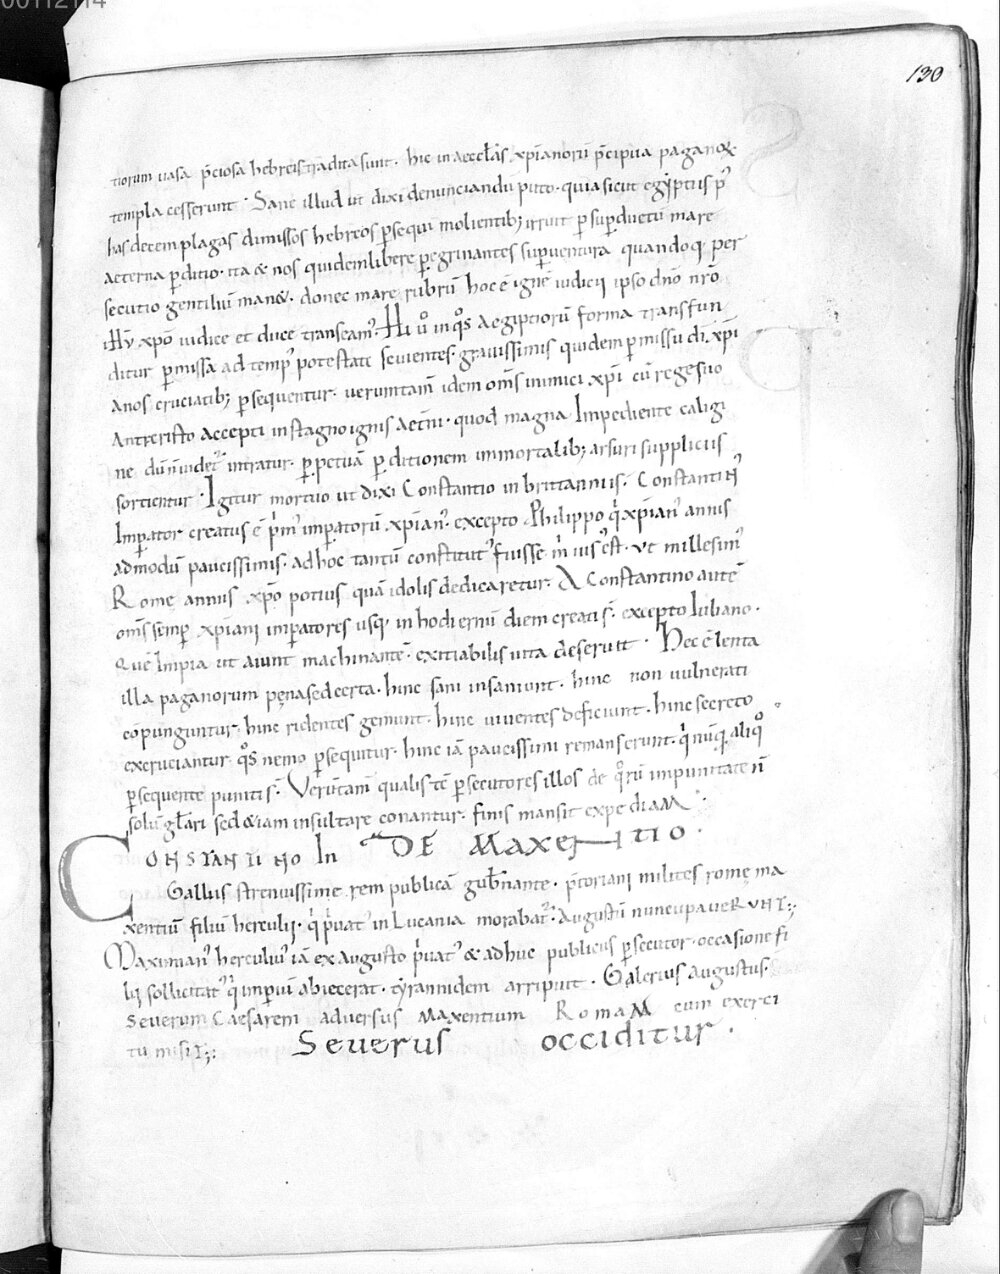 00112114
130
tiorum uasa p̄ciosa hebreis tradita sunt. hic in aeccl̄as xp̄ianorū p̄cipua paganoꝝ
templa cesserunt. Sane illud ut dixi denunciandū puto. quia sicut egyptus p᷒
has decem plagas dimissos hebreos ꝑsequi molientib; irruit ꝑ suꝑductū mare
aeterna ꝑditio. ita & nos quidem libere ꝑegrinantes suꝑuentura quandoq. per
secutio gentiliū man&. donec mare rubrū hoc ē ignē iudicij ipso dn̄o nr̄o
ihū xp̄o iudice et duce transeam᷒. Hi ů in q̊s aegiptiorū forma transfun
ditur ꝑmissa ad temp᷒ potestati seuientes. grauissimis quidem ꝑmissu dī. xp̄i
anos cruciatib; ꝑsequentur. uerumtam̄ idem om̄s inimici xp̄i cū rege suo
Antexristo accepti in stagno ignis aet̄ni. quod magna Impediente caligi
ne dū n̄ uidet᷒ intratur. ꝑpetuā ꝑditionem immortalib; arsuri suppliciis
sortientur. Igitur mortuo ut dixi Constantio in brittanniis. Constantin᷒
Imꝑator creatus ē p̄m᷒ imꝑatorū xp̄ian᷒. excepto Philippo q̇ xp̄ian᷒ annis
admodū paucissimis. ad hoc tantū constitut᷒ fuisse m̄ uis᷒ est. ut millesim᷒
Rome annus xp̄o potius quā idolis dedicaretur. A Constantino autē
om̄s semꝑ xp̄iani imꝑatores usq; in hodiernū diem creati s̄. excepto Iuliano.
Quē Impia ut aiunt machinantē. exitiabilis uita deseruit. Hec ē lenta
illa paganorum pęna sed certa. hinc sani insaniunt. hinc non uulnerati
cōpunguntur. hinc ridentes gemunt. hinc uiuentes deficiunt. hinc secreto
excruciantur q̊s nemo ꝑsequitur. hinc iā paucissimi remanserunt. q̇ nūq; aliq̊
ꝑsequente puniti s̄. Verūtam̄ qualis tē ꝑsecutores illos de q̊rū impunitate n̄
solū gl̄ari sed & iam insultare conantur. finis mansit expediaM
CONSTANTINO In DE MAXENTIO.
Gallus strenuissime rem publicā gub̄nante. p̄toriani milites rome ma
xentiū filiū herculij. q̇ p̄uat᷒ in Lucania morabat᷒. Augustū nuncupaueRVNT;
Maximian᷒ herculiu᷒ iā ex augusto p̄uat᷒ & adhuc publicus ꝑsecutor. occasione fi
lij sollicitat᷒ q̇ imꝑiū abiecerat. tyrannidem arripuit. Galerius augustus.
Seuerum Caesarem aduersus Maxentium RomaM cum exerci
tu misiT;
Seuerus occiditur.